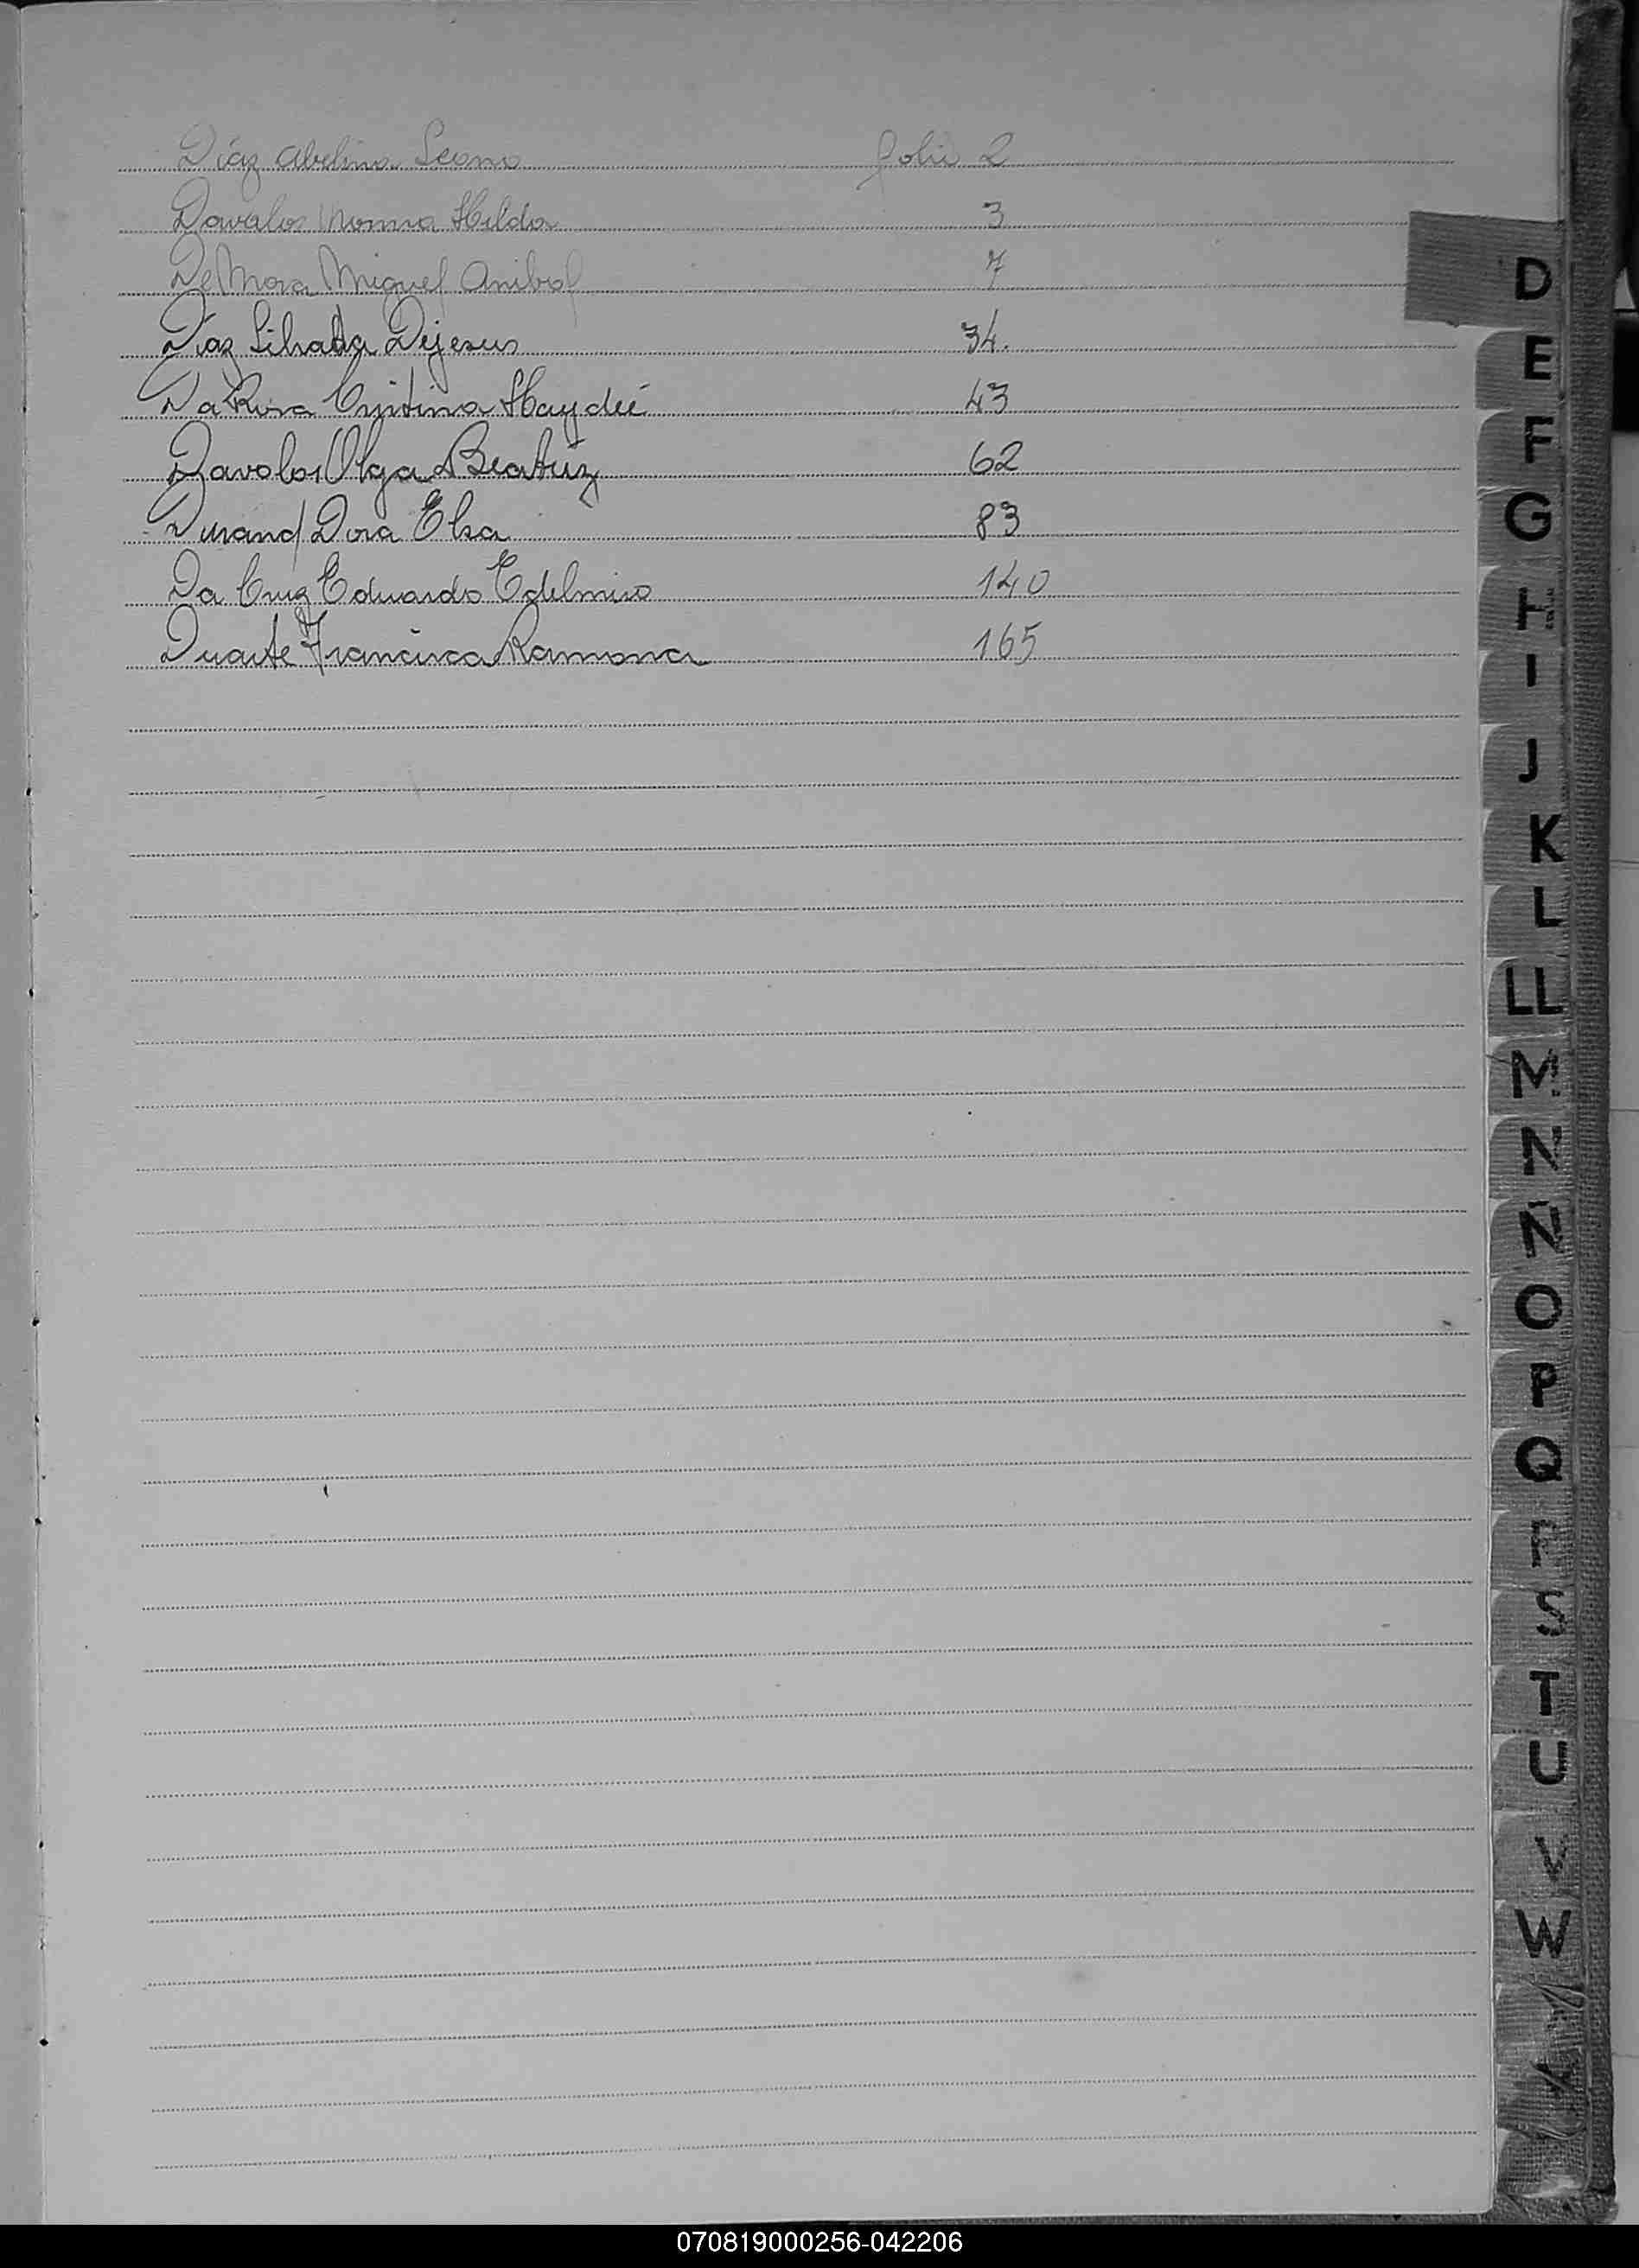 Díaz Abelina Leona folio 2
Davalos Norma Hilda 3
De Mora Miguel Anibal 7
Díaz Librada Dejesus 34.
Da Rosa Cristina Haydeé 43
Davalos Olga Beatriz 62
Durand Dora Elsa 83
Da Cruz Eduardo Edelmiro 140
Duarte Francisca Ramona 165
D
E
F
G
H
I
J
K
L
LL
M
N
Ñ
O
P
Q
R
S
T
U
V
W
070819000256-042206